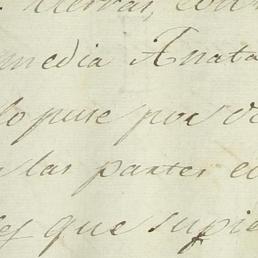 Hervas, con
media Anata
lo puse por
las partes
que supie